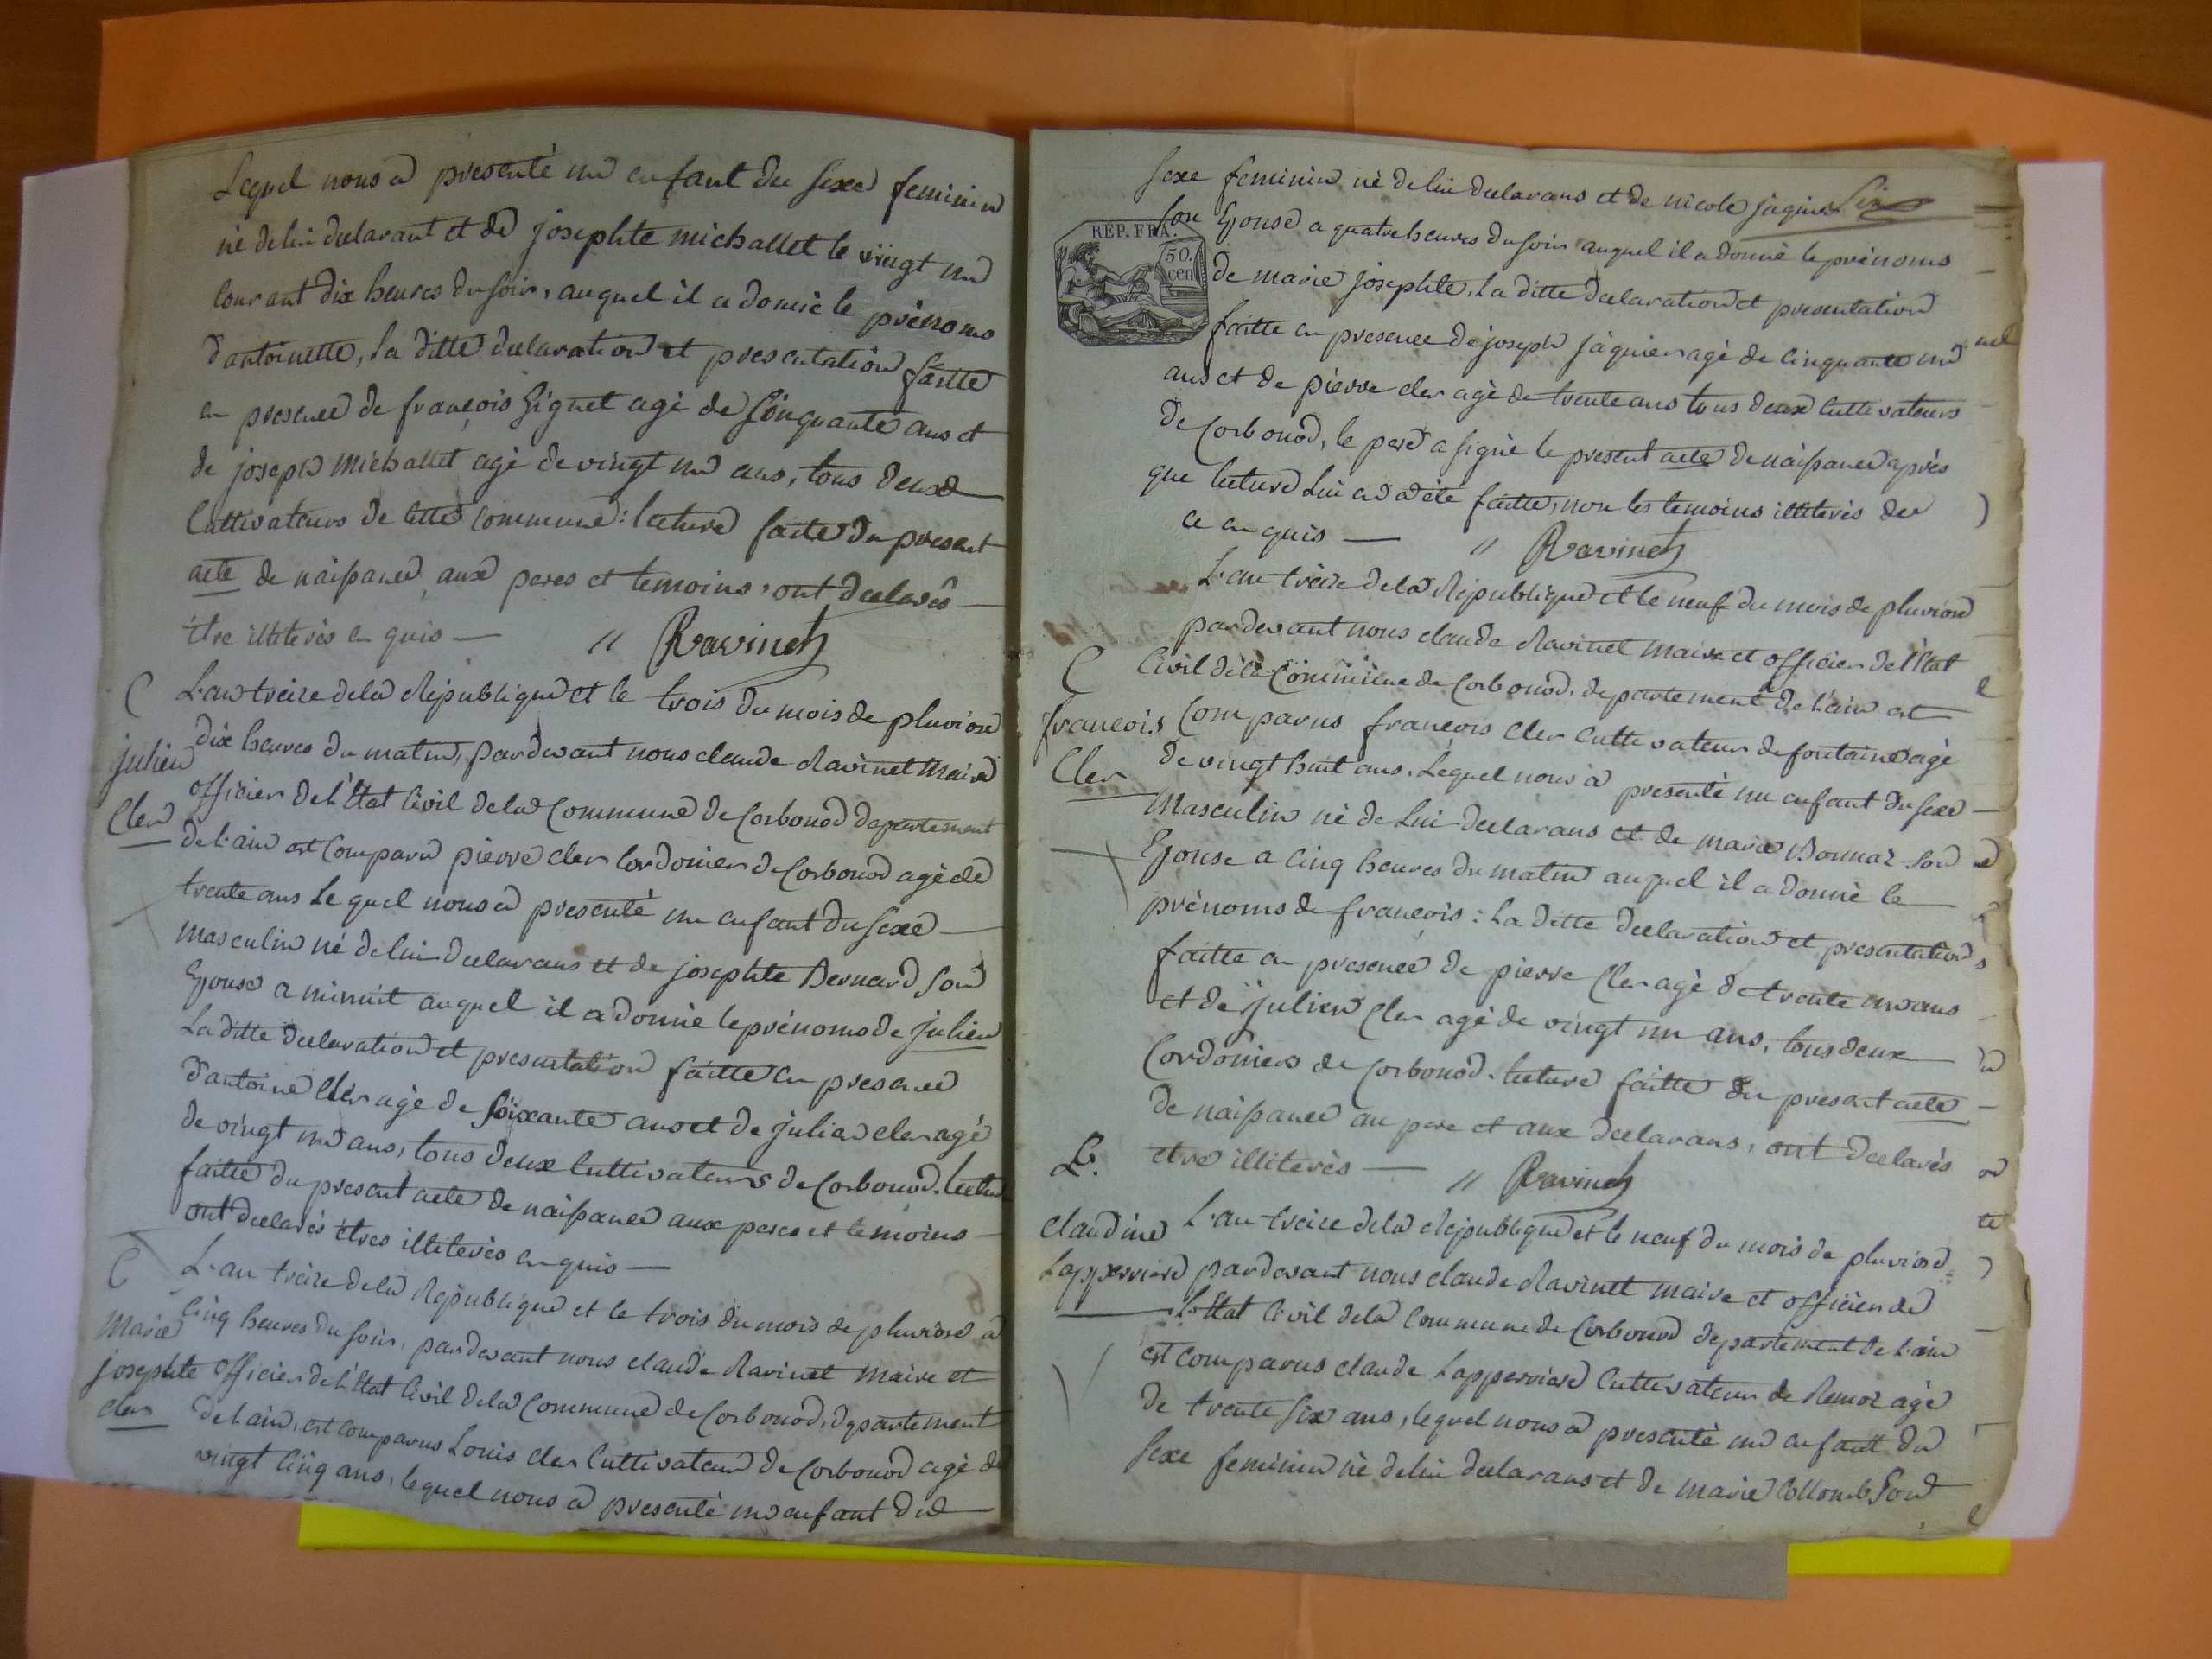 Lequel nous a presenté un enfant du sexe feminin
né de lui declarant et de josephte michallet le vingt un
Courant dix heures du soir, auquel il a donné le prénoms
d'antoinette, la ditte declaration et presentation faitte
en presence de françois Gignet agé de Cinquante ans et
de joseph michallet agé de vingt un ans, tous deux
Cultivateurs de cette commune: lecture faite du present
acte de naissance aux peres et temoins, ont declarés
être illiterés enquis — // Ravinet
C
julien
Cler
L'an treize de la République et le trois du mois de pluviose
dix heures du matin, pardevant nous claude Ravinet Maire
officier de L'Etat Civil de la Commune de Corbonod departement
de L'ain est Comparu pierre cler Cordonier de Corbonod agé de
trente ans Lequel nous a presenté un enfant du sexe
masculin né de lui declarans et de josephte Bernard son
Epouse a minuit auquel il a donné le prénoms de julien
La ditte declaration et presentation faitte en presence
d'antoine Cler agé de soixante ans et de julien cler agé
de vingt un ans, tous deux Cultivateurs de Corbonod. lecture
faitte du present acte de naissance aux peres et temoins
ont declarés êtres illiterés enquis —
C
Marie
josephte
cler
L'an treize de la République et le trois du mois de pluviose a
Cinq heures du soir, pardevant nous claude Ravinet maire et
officier de L'Etat Civil de la Commune de Corbonod, departement
de L'ain, est comparus Louis cler Cultivateur de Corbonod agé de
vingt Cinq ans, lequel nous a presenté un enfant du
sexe feminin né de lui declarans et de nicole jaquier
RÉP. FRA.
50.
cen
son Epouse a quatre heures du soir auquel il a donné le prénoms
de marie josephte, La ditte declaration et presentation
faitte en presence de joseph jaquier agé de Cinquante un
ans et de pierre cler agé de trente ans tous deux Cultivateurs
de Corbonod, le pere a signé le present acte de naissance après
que lecture Lui en a été faitte, non les temoins illiterés de
ce enquis — // Ravinet
L'an treize de la République et le neuf du mois de pluviose
pardevant nous claude Ravinet maire et officier de l'Etat
C
françois
Cler
Civil de la Commune de Corbonod, departement de L'ain est
Comparus françois cler Cultivateur de fontaine agé
de vingt huit ans, Lequel nous a presenté un enfant du sexe
Masculin né de Lui declarans et de marie Bonnaz son
Epouse a Cinq heures du matin auquel il a donné le
prénoms de françois: La ditte declaration et presentation
faitte en presence de pierre Cler agé de trente un ans
et de julien Cler agé de vingt un ans, tous deux
Cordoniers de Corbonod. lecture faitte du present acte
de naissance au pere et aux declarans, ont declarés
etre illiterés — // Ravinet
L.
claudine
Lapperriere
L'an treize de la République et le neuf du mois de pluviose
pardevant nous claude Ravinet maire et officier de
L'Etat Civil de la Commune de Corbonod departement de L'ain
est comparus claude Lapperriere Cultivateur de Remoz agé
de trente six ans, lequel nous a presenté un enfant du
sexe feminin né de lui declarans et de marie Collomb son